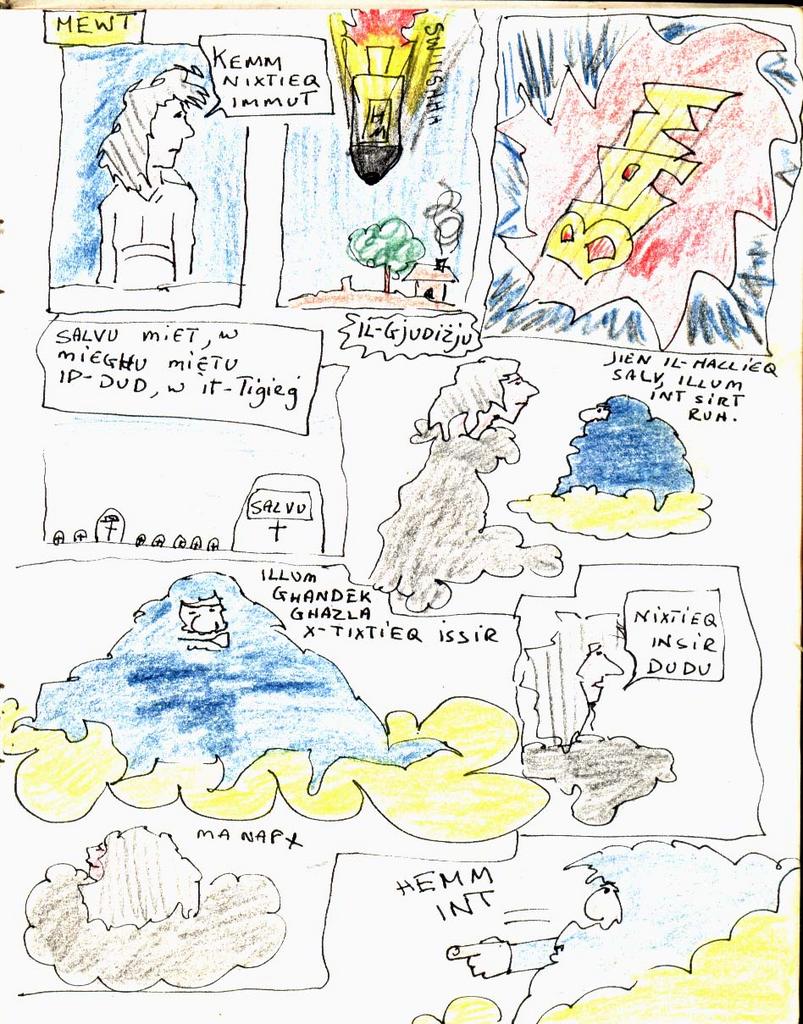 MEWT
KEMM
NIXTIEQ
IMMUT
SWIISHHH
HM
SALVU MIET, W
MIEGHU MIETU
ID-DUD, W IT-TIGIEG
IL-GJUDIZJU
JIEN IL-HALLIEQ
SALV, ILLUM
INT SIRT
RUH.
SALVU
ILLUM
GHANDEK
GHAZLA
X-TIXTIEQ ISSIR
NIXTIEQ
INSIR
DUDU
MA NAFX
HEMM
INT